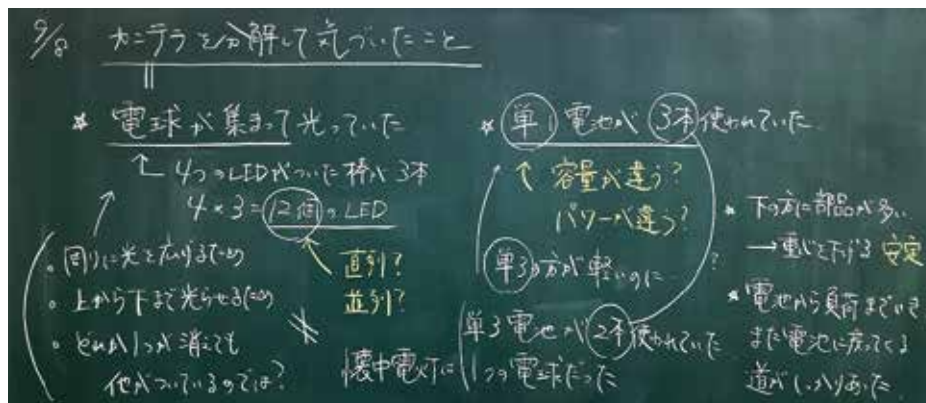 9/8 カンテラを分解して気づいたこと
* 電球が集まって光っていた
← 4つのLEDがついた棒が3本
4×3=12個のLED
直列?
並列?
。周りに光を広げるため
。上から下まで光らせるため
。どれか1つが消えても
他がついているのでは?
* 単1電池が3本使われていた
↑ 容量が違う?
パワーが違う?
単3の方が軽いのに
?
懐中電灯は
単3電池が2本使われていた
1つの電球だった
* 下の方に部品が多い
→重心を下げる 安定
* 電池から負荷までいき
また電池に戻ってくる
道がしっかりあった